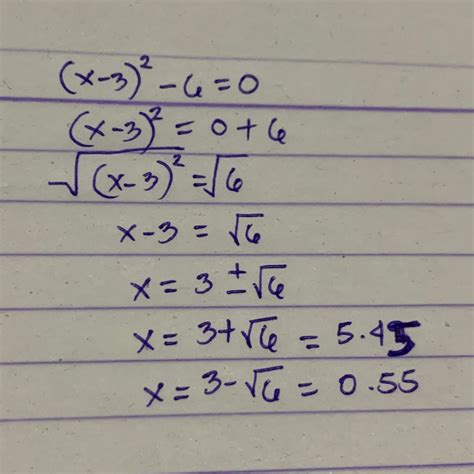 (x-3)² - 6 = 0
(x-3)² = 0 + 6
√(x-3)² = √6
x-3 = √6
x = 3 ± √6
x = 3+√6 = 5.45
x = 3-√6 = 0.55